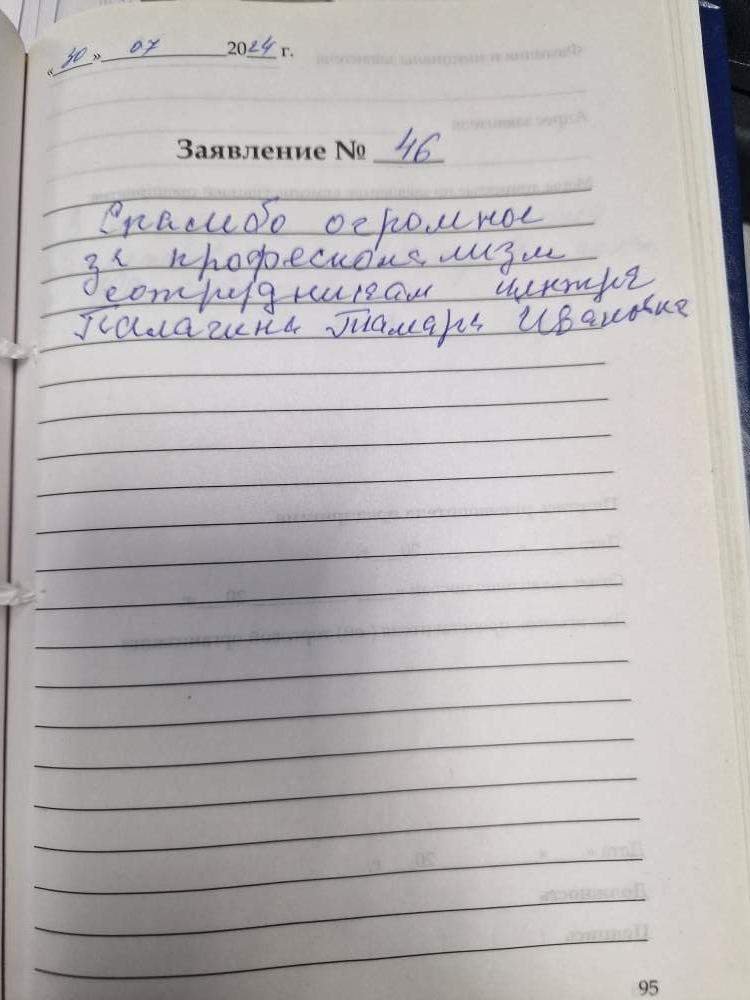 «30» 07 2024 г.
Заявление № 46
Спасибо огромное
за професионализм
сотрудникам центра
Палагина Тамара Ивановна
95